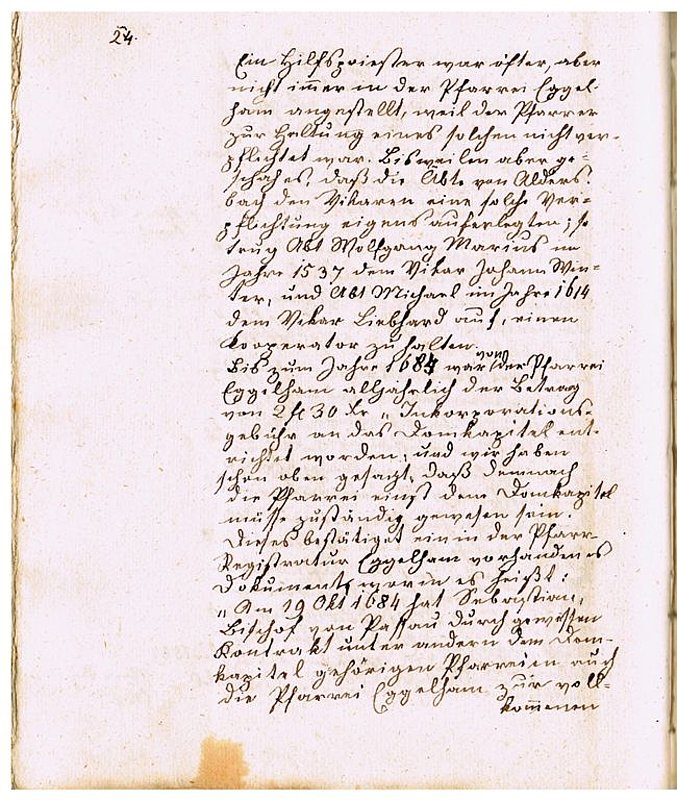 24.
Ein Hilfspriester war öfter, aber
nicht im̄er in der Pfarrei Eggel-
ham angestellt, weil der Pfarrer
zur Haltung eines solchen nicht ver-
pflichtet war. Bisweilen aber ge-
schah es, daß die Äbte von Alders-
bach den Vikaren eine solche Ver-
pflichtung eigens auferlegten; so
trug Abt Wolfgang Marius im
Jahre 1537 dem Vikar Johann Win-
ter, und Abt Michael im Jahre 1614
dem Vikar Liebhard auf, einen
Kooperator zu halten.
Bis zum Jahre 1684 war von der Pfarrei
Eggelham alljährlich der Betrag
von 2 fl 30 Xr „Inkorporations-
gebühr an das Domkapitel ent-
richtet worden, und wir haben
schon oben gesagt, daß demnach
die Pfarrei einst dem Domkapitel
müsse zuständig gewesen sein.
Dieses bestätiget ein in der Pfarr-
Registratur Eggelham vorhandenes
Dokument, worin es heißt:
„Am 19 Okt 1684 hat Sebastian,
Bischof von Passau durch gewissen
Kontrakt unter andern dem Dom-
kapitel gehörigen Pfarreien auch
die Pfarrei Eggelham zur voll-
kom̄enen